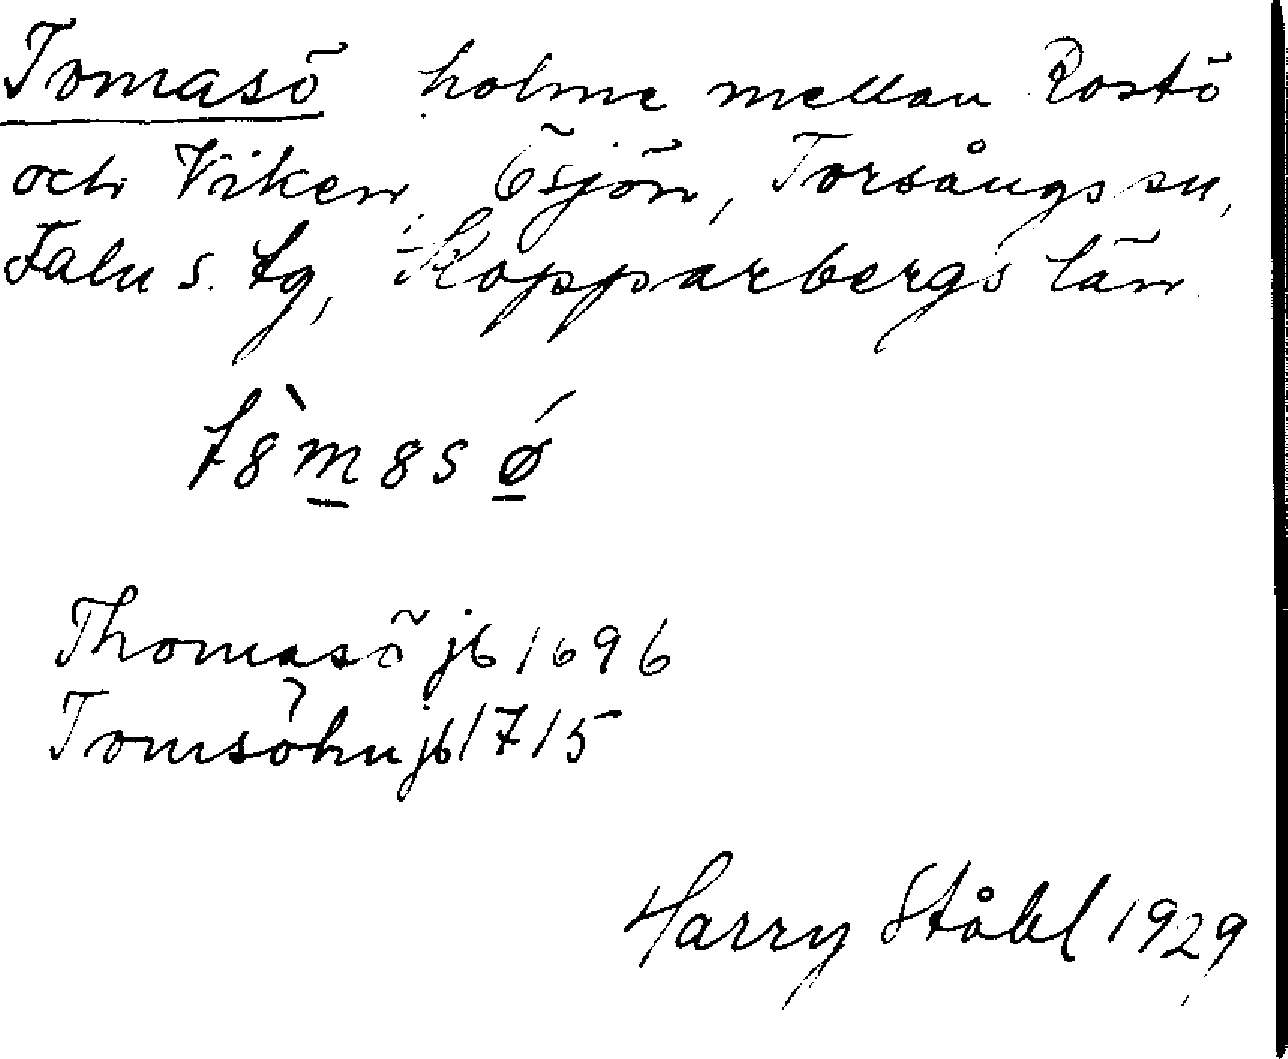 Tomasö holme mellan Rostö
och Viken, Ösjön, Torsångs sn,
Falu s. tg, Kopparbergs län
Thomasö jb 1696
Tomsöhn jb 1715
Harry Ståhl 1929